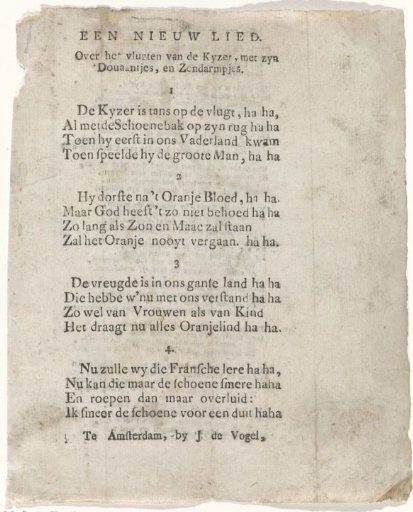 EEN NIEUW LIED.
Over het vlugten van de Kyzer, met zyn
Douaantjes, en Zendarmpjes.
1
De Kyzer is tans op de vlugt, ha ha,
Al met de Schoenebak op zyn rug ha ha
Toen hy eerst in ons Vaderland kwam
Toen speelde hy de groote Man, ha ha
2
Hy dorste na 't Oranje Bloed, ha ha.
Maar God heeft 't zo niet behoed ha ha
Zo lang als Zon en Maac zal staan
Zal het Oranje nooyt vergaan. ha ha.
3
De vreugde is in ons gante land ha ha
Die hebbe w'nu met ons verstand ha ha
Zo wel van Vrouwen als van Kind
Het draagt nu alles Oranjelind ha ha.
4.
Nu zulle wy die Fransche lere ha ha,
Nu kan die maar de schoene smere haha
En roepen dan maar overluid:
Ik smeer de schoene voor een duit haha
Te Amsterdam, by J. de Vogel,